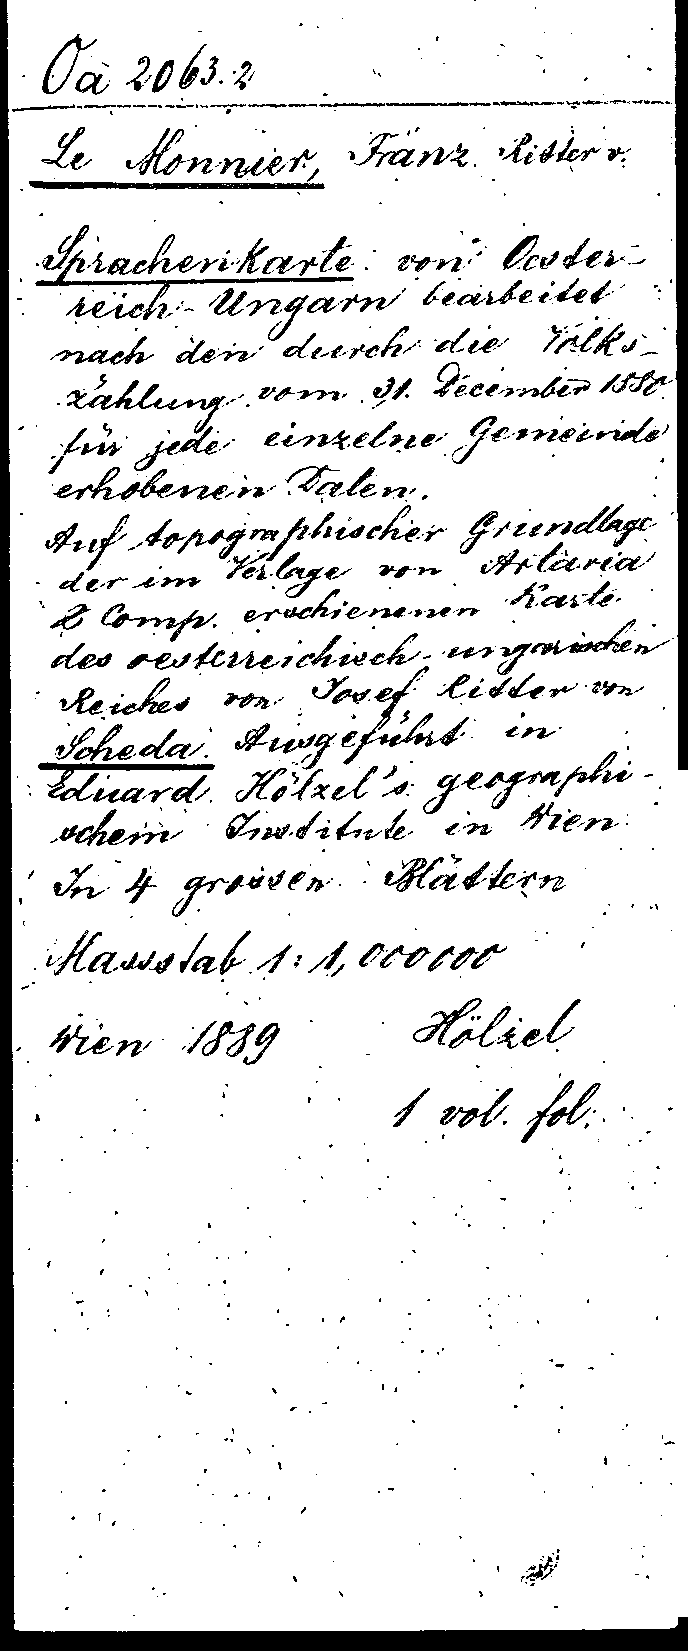 Oa 2063.2
Le Monnier, Franz Ritter v.
Sprachenkarte von Oester-
reich-Ungarn bearbeitet
nach den durch die Volks-
zählung vom 31. December 1880
für jede einzelne Gemeinde
erhobenen Daten.
Auf topographischer Grundlage
der im Verlage von Artaria
& Comp. erschienenen Karte
des oesterreichisch-ungarischen
Reiches von Josef Ritter von
Scheda. Ausgeführt in
Eduard Hölzel's geographi-
schem Institute in Wien
In 4 grossen Blättern
Massstab 1:1,000000
Wien 1889 Hölzel
1 vol. fol.